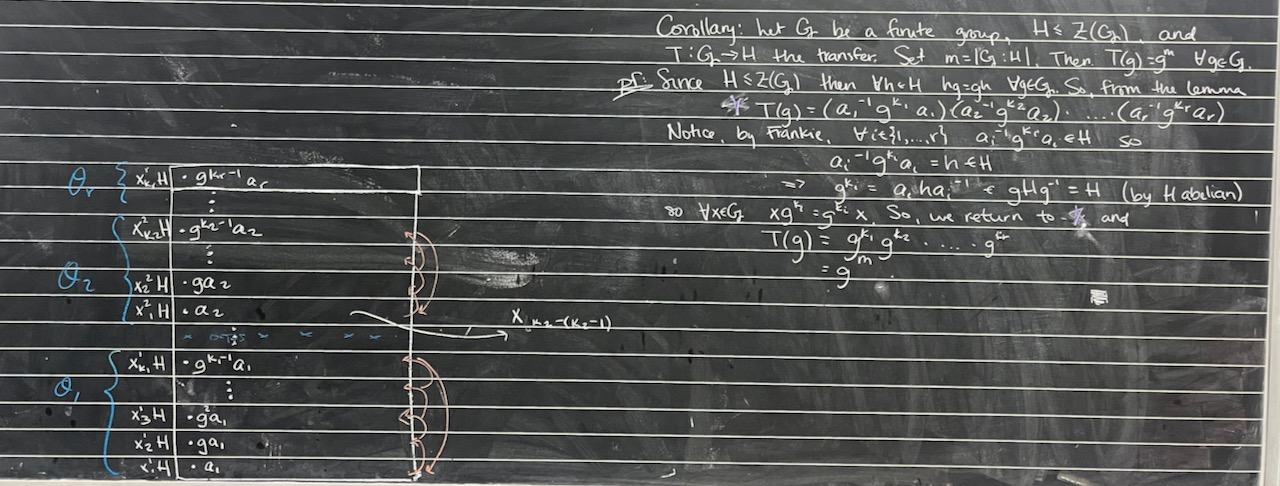 Corollary: Let G be a finite group, H ≤ Z(G), and
T: G → H the transfer. Set m = |G:H|. Then T(g) = gᵐ ∀g∈G.
pf: Since H ≤ Z(G) then ∀h∈H hg=gh ∀g∈G. So, from the lemma
* T(g) = (a₁⁻¹ g^k₁ a₁)(a₂⁻¹ g^k₂ a₂) · ..... · (aᵣ⁻¹ g^kᵣ aᵣ)
Notice, by Frankie, ∀i∈{1,...,r} aᵢ⁻¹ g^kᵢ aᵢ ∈ H so
aᵢ⁻¹ g^kᵢ aᵢ = h ∈ H
=> g^kᵢ = aᵢ h aᵢ⁻¹ ∈ gHg⁻¹ = H (by H abelian)
so ∀x∈G xg^kᵢ = g^kᵢ x. So, we return to * and
T(g) = g^k₁ g^k₂ · ..... · g^kᵣ
= gᵐ
θᵣ { x^r_kᵣ H · g^(kᵣ-1) aᵣ
⋮
θ₂ { x²_k₂ H · g^(k₂-1) a₂
⋮
x²₂ H · g a₂
x²₁ H · a₂
x_k₂-(k₂-1)
θ₁ { x¹_k₁ H · g^(k₁-1) a₁
⋮
x¹₃ H · g² a₁
x¹₂ H · g a₁
x¹₁ H · a₁